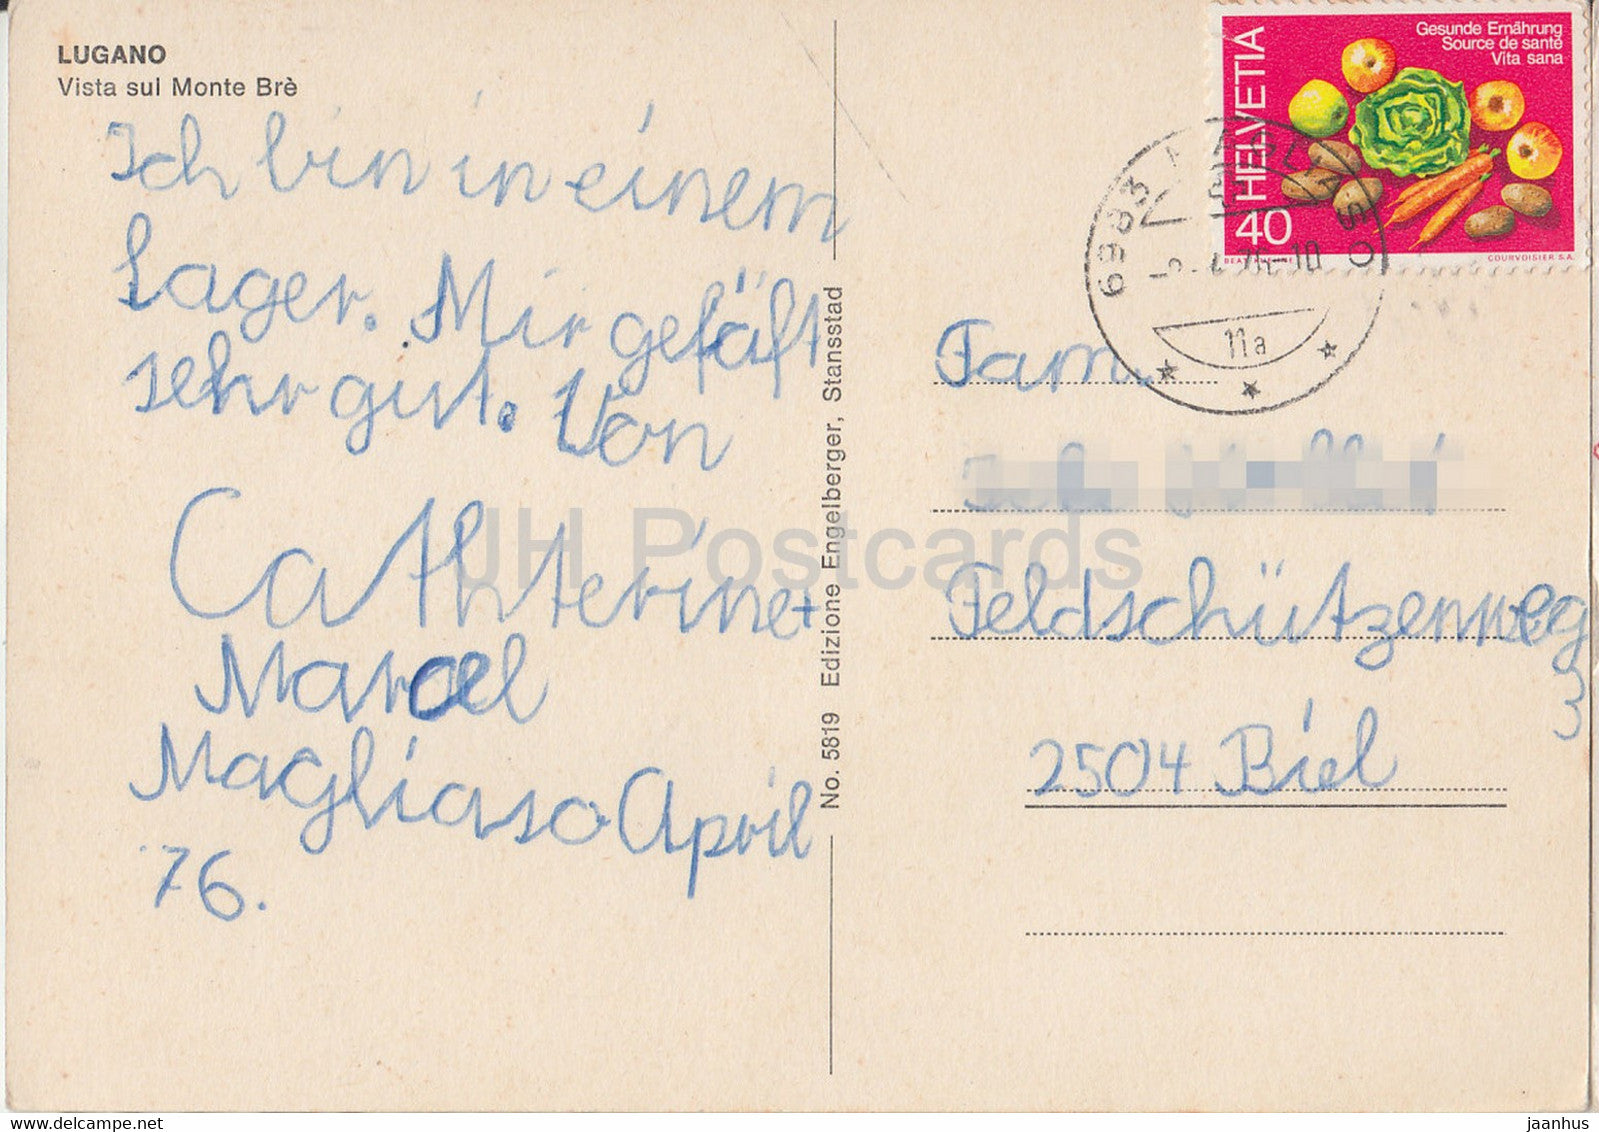 LUGANO
Vista sul Monte Brè
Ich bin in einem
Lager. Mir gefält
sehr gut. Von
Cathterine+
Marcel
Magliaso April
76.
No. 5819 Edizione Engelberger, Stansstad
HELVETIA
40
Gesunde Ernährung
Source de santé
Vita sana
COURVOISIER S.A.
6983 MAGLIASO
11a
Fam.
Feldschützenweg
3
2504 Biel
JH Postcards
www.delcampe.net
jaanhus